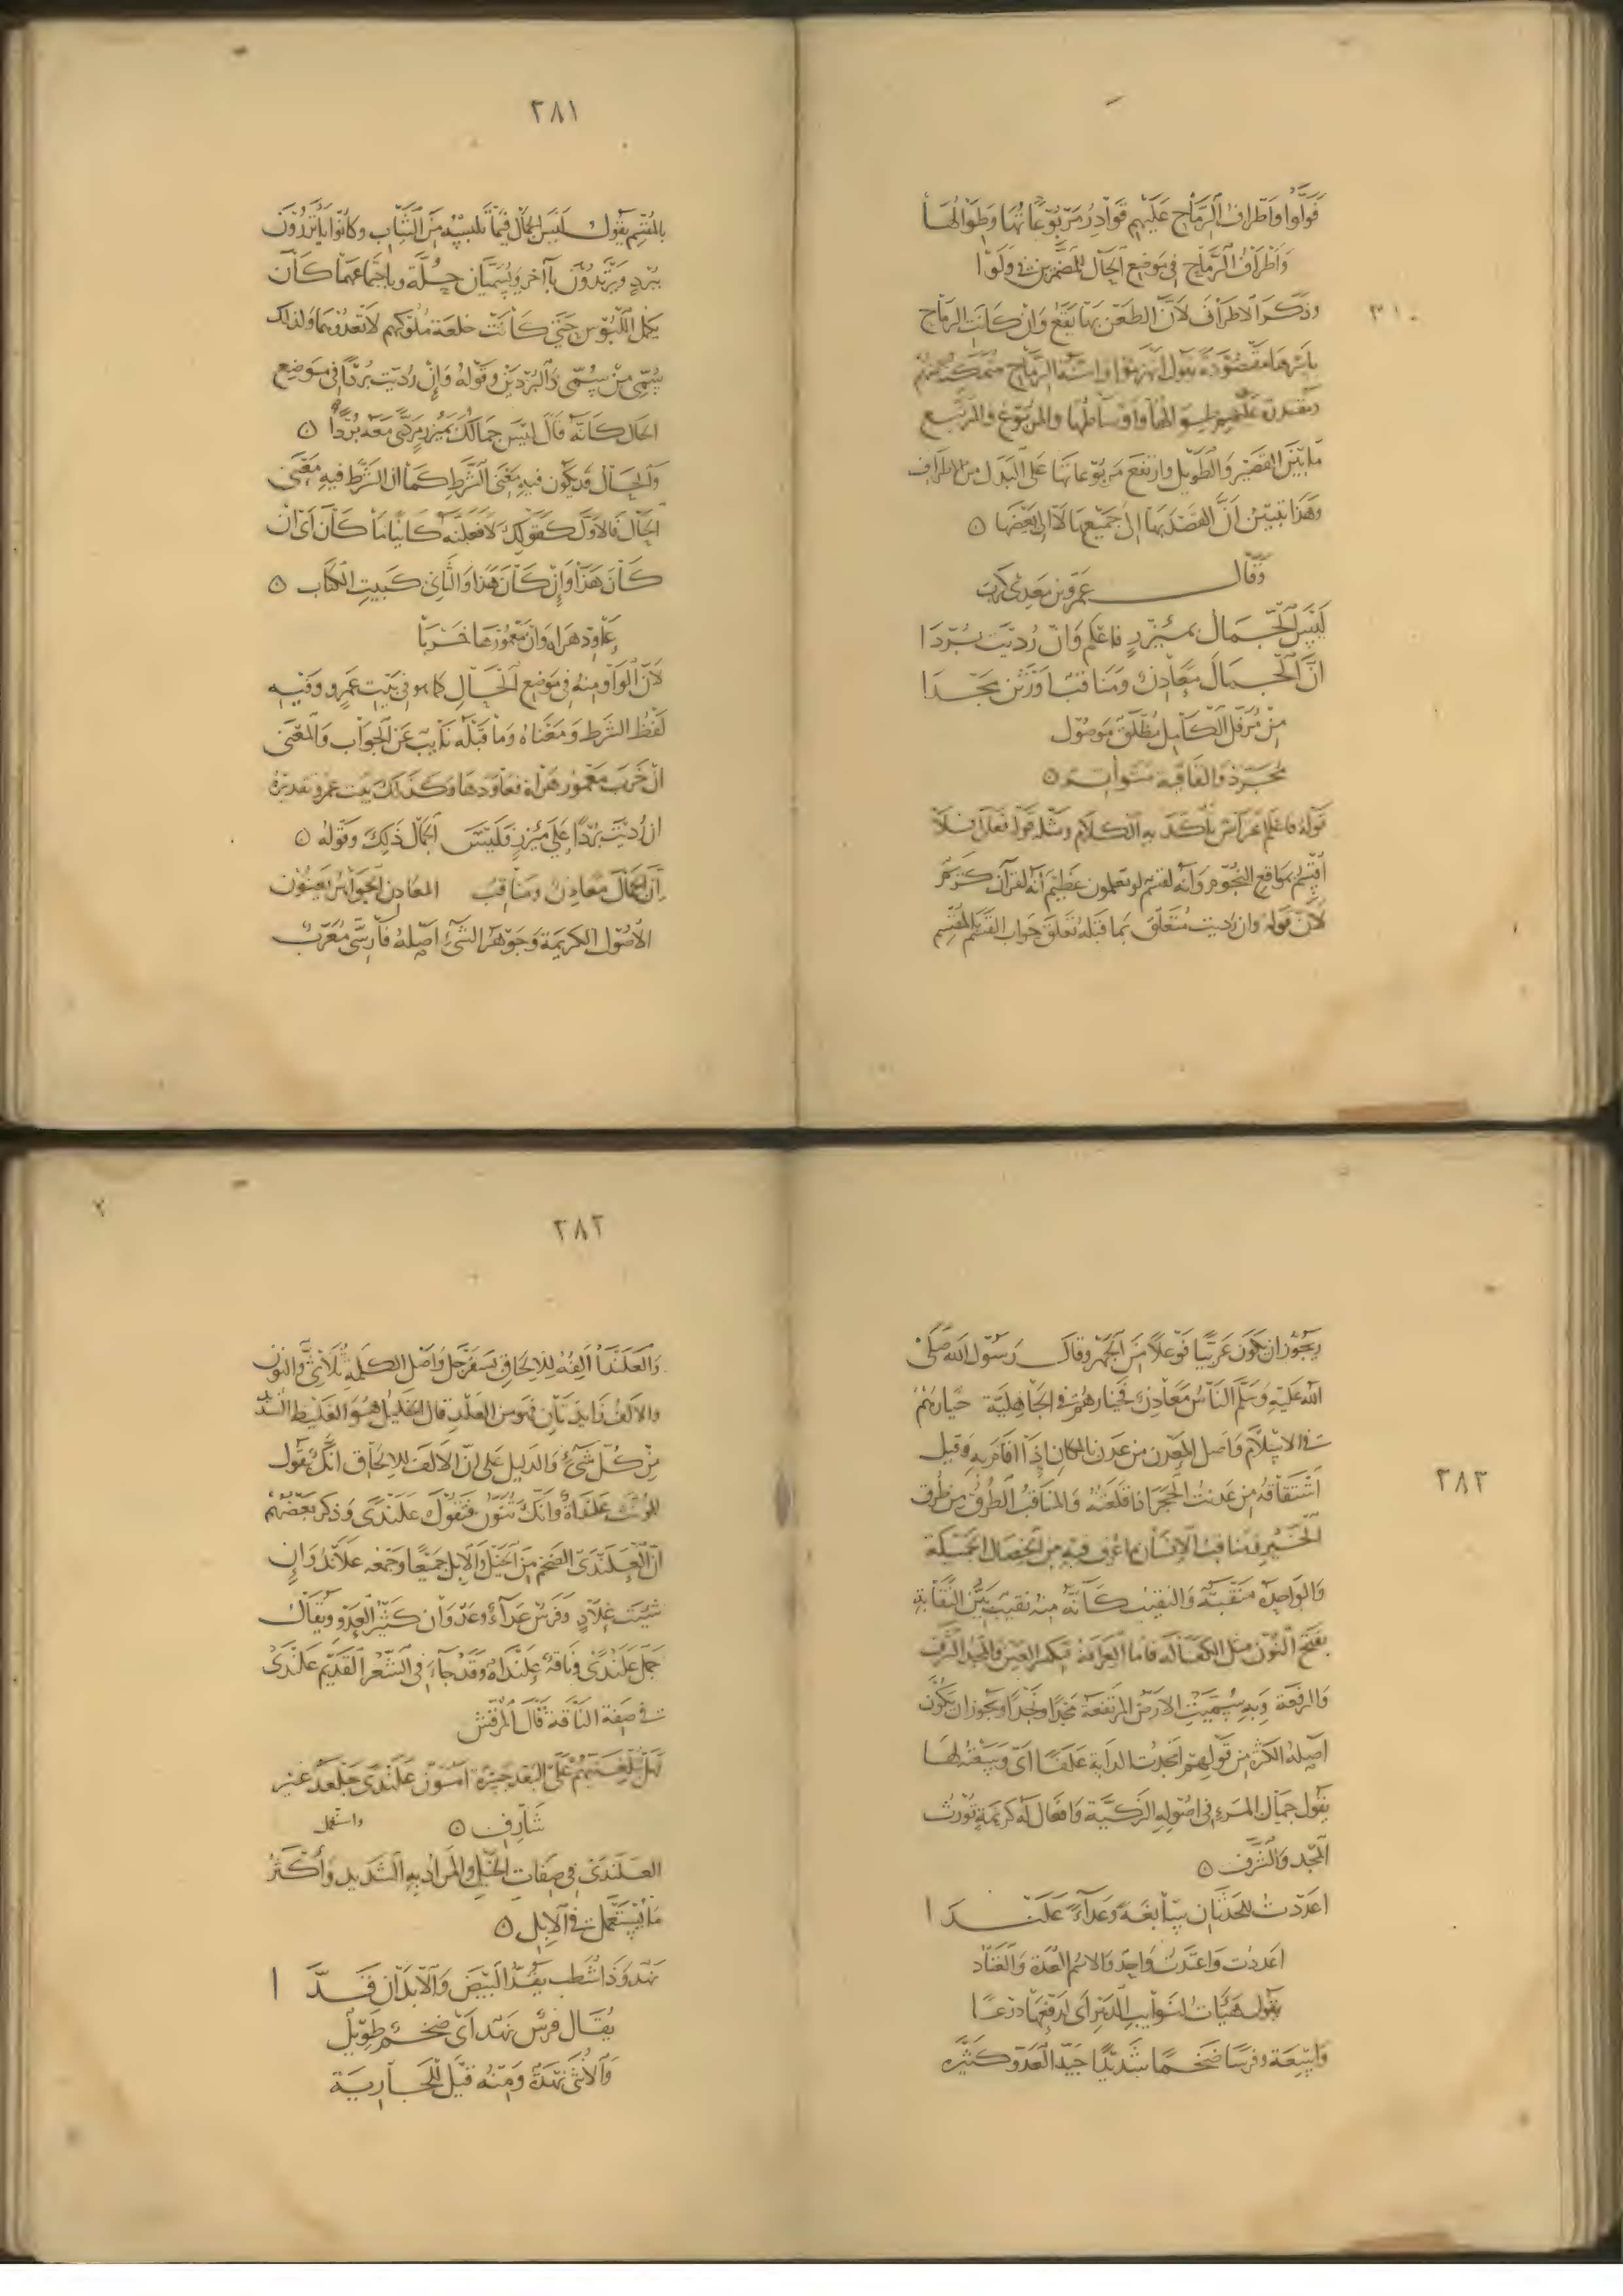 فولوا واطراف الرماح عليهم قوادر مربوعاتها وطوالها
واطراف الرماح في موضع الحال للمضمرين في ولوا
٣١٠
وذكر الاطراف لان الطعن بها يقع وان كانت الرماح
باسرها مقصودة يقول انهزموا واسنة الرماح متمكنة منهم
عليهم طوالها واوساطها والمربوع والمرتبع
ما بين القصير والطويل وارتفع مربوعاتها على البدل من الاطراف
وهذا تبيين أن القصد بها الى جميعها لا الى بعضها ٥
وقال عمرو بن معدي كرب
ليس الجمال بمئزر فاعلم وان رديت بردا
ان الجمال معادن ومناقب اورثن مجدا
من مرفل الكامل مطلق موصول
مجرد والقافية متواتر ٥
قوله فاعلم اعتراض تأكد به الكلام ومثله قوله تعلى فلا
أقسم بمواقع النجوم وانه لقسم لو تعلمون عظيم انه لقرآن كريم
لان قوله وان رديت متعلق بما قبله تعلق جواب القسم بالمقسم
٢٨١
بالمقسم يقول ليس الجمال فيما تلبسه من الثياب وكانوا يأتزرون
ببرد ويرتدون بآخر ويسميان حلة وباجتماعهما كان
يكمل اللبوس حتى كانت خلعة ملوكهم لا تعدوهما ولذلك
سمي من سمي ذا البردين وقوله وان رديت بردا في موضع
الحال كانه قال ليس جمالك بمئزر مردى معه بردا ٥
والحال قد يكون فيه معنى الشرط كما ان الشرط فيه معنى
الحال فالاول كقولك لافعلنه كائنا ما كان أي ان
كان هذا وان كان هذا والثاني كبيت الكتاب ٥
عاود هراة وان معمورها خربا
لان الواو منه في موضع الحال كما هو في بيت عمرو وفيه
لفظ الشرط ومعناه وما قبله نايب عن الجواب والمعنى
ان خرب معمور هراة فعاودها وكذلك بيت عمرو تقديره
ان رديت بردا على مئزر فليس الجمال ذلك وقوله ٥
ان الجمال معادن ومناقب المعادن الجواهر يعنون
الاصول الكريمة وجوهر الشيء اصله فارسي معرب
ويجوز ان يكون عربيا فوعلا من الجهر وقال رسول الله صلى
الله عليه وسلم الناس معادن فخيارهم في الجاهلية خيارهم
في الاسلام واصل المعدن من عدن بالمكان إذا اقام به وقيل
٢٨٢
اشتقاقه من عدنت الحجر اذا قلعته والمناقب الطرق من طرق
الخير فمناقب الانسان ما عرف فيه من الخصال الجميلة
والواحدة منقبة والنقيب كأنه منه نقيب بين النقابة
بفتح النون مثل الكفالة فاما العرافة فبكسر العين والمجد الشرف
والرفعة وبه سميت الارض المرتفعة مجدا ونجدا ويجوز ان يكون
اصله الكثرة من قولهم امجدت الدابة علفا أي وسعته لها
يقول جمال المرء في اصوله الزكية وافعال له كريمة تورث
المجد والشرف ٥
اعددت للحدثان سابغة وعداء علندا
اعددت واعتدت واحد والاسم العدة والعتاد
يقول هيأت لنوايب الدهر أي لدفعها درعا
واسعة وفرسا ضخما شديدا جيد العدو كثيره
٢٨٢
والعلندا ألفه للالحاق بسفرجل واصل الكلمة ثلاثي والنون
والالف زايدتان فهو من العلد قال الخليل هو الغليظ الشديد
من كل شيء والدليل على ان الالف للالحاق انك تقول
للمؤنث علنداة وانك تنون فتقول علندى وذكر بعضهم
ان العلندى الضخم من الخيل والابل جميعا وجمعه علاند وإن
شئت علاد وفرس عداء وعدوان كثير العدو ويقال
جمل علندى وناقة علنداة وقد جاء في الشعر القديم علندى
في صفة الناقة قال المرقش
هل تبلغنيهم على البعد جسرة امون علندى جلعد غير
شارف ٥ واستعمل
العلندى في صفات الخيل والمراد به الشديد وأكثر
ما يستعمل في الابل ٥
نهد وذا شطب يقد البيض والابدان قدا
يقال فرس نهد أي ضخم طويل
والانثى نهدة ومنه قيل للجارية